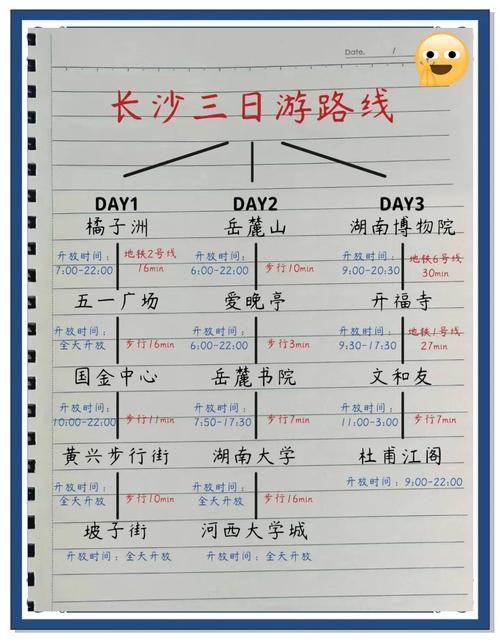 Date. /
长沙三日游路线
DAY1
橘子洲
开放时间：
7:00-22:00
地铁2号线
16min
五一广场
开放时间：
全天开放
步行16min
国金中心
开放时间：
10:00-22:00
步行11min
黄兴步行街
开放时间：
全天开放
步行10min
坡子街
开放时间：全天开放
DAY2
岳麓山
开放时间：
6:00-22:00
步行10min
爱晚亭
开放时间：
6:00-22:00
步行3min
岳麓书院
开放时间：
7:50-17:30
步行7min
湖南大学
开放时间：
全天开放
步行16min
河西大学城
开放时间：全天开放
DAY3
湖南博物院
开放时间：
9:00-20:30
地铁6号线
30min
开福寺
开放时间：
9:30-17:30
地铁1号线
27min
文和友
开放时间：
11:00-3:00
步行7min
杜甫江阁
开放时间：9:00-22:00